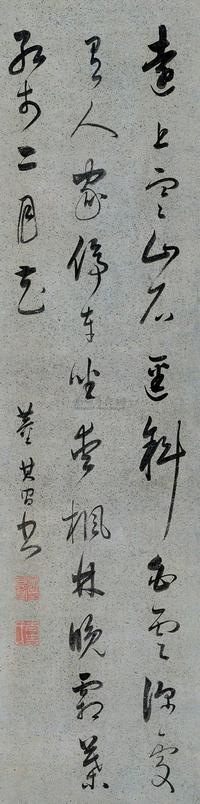 遠上寒山石逕斜白雲深處
有人家停車坐愛楓林晚霜葉
紅於二月花
董其昌書